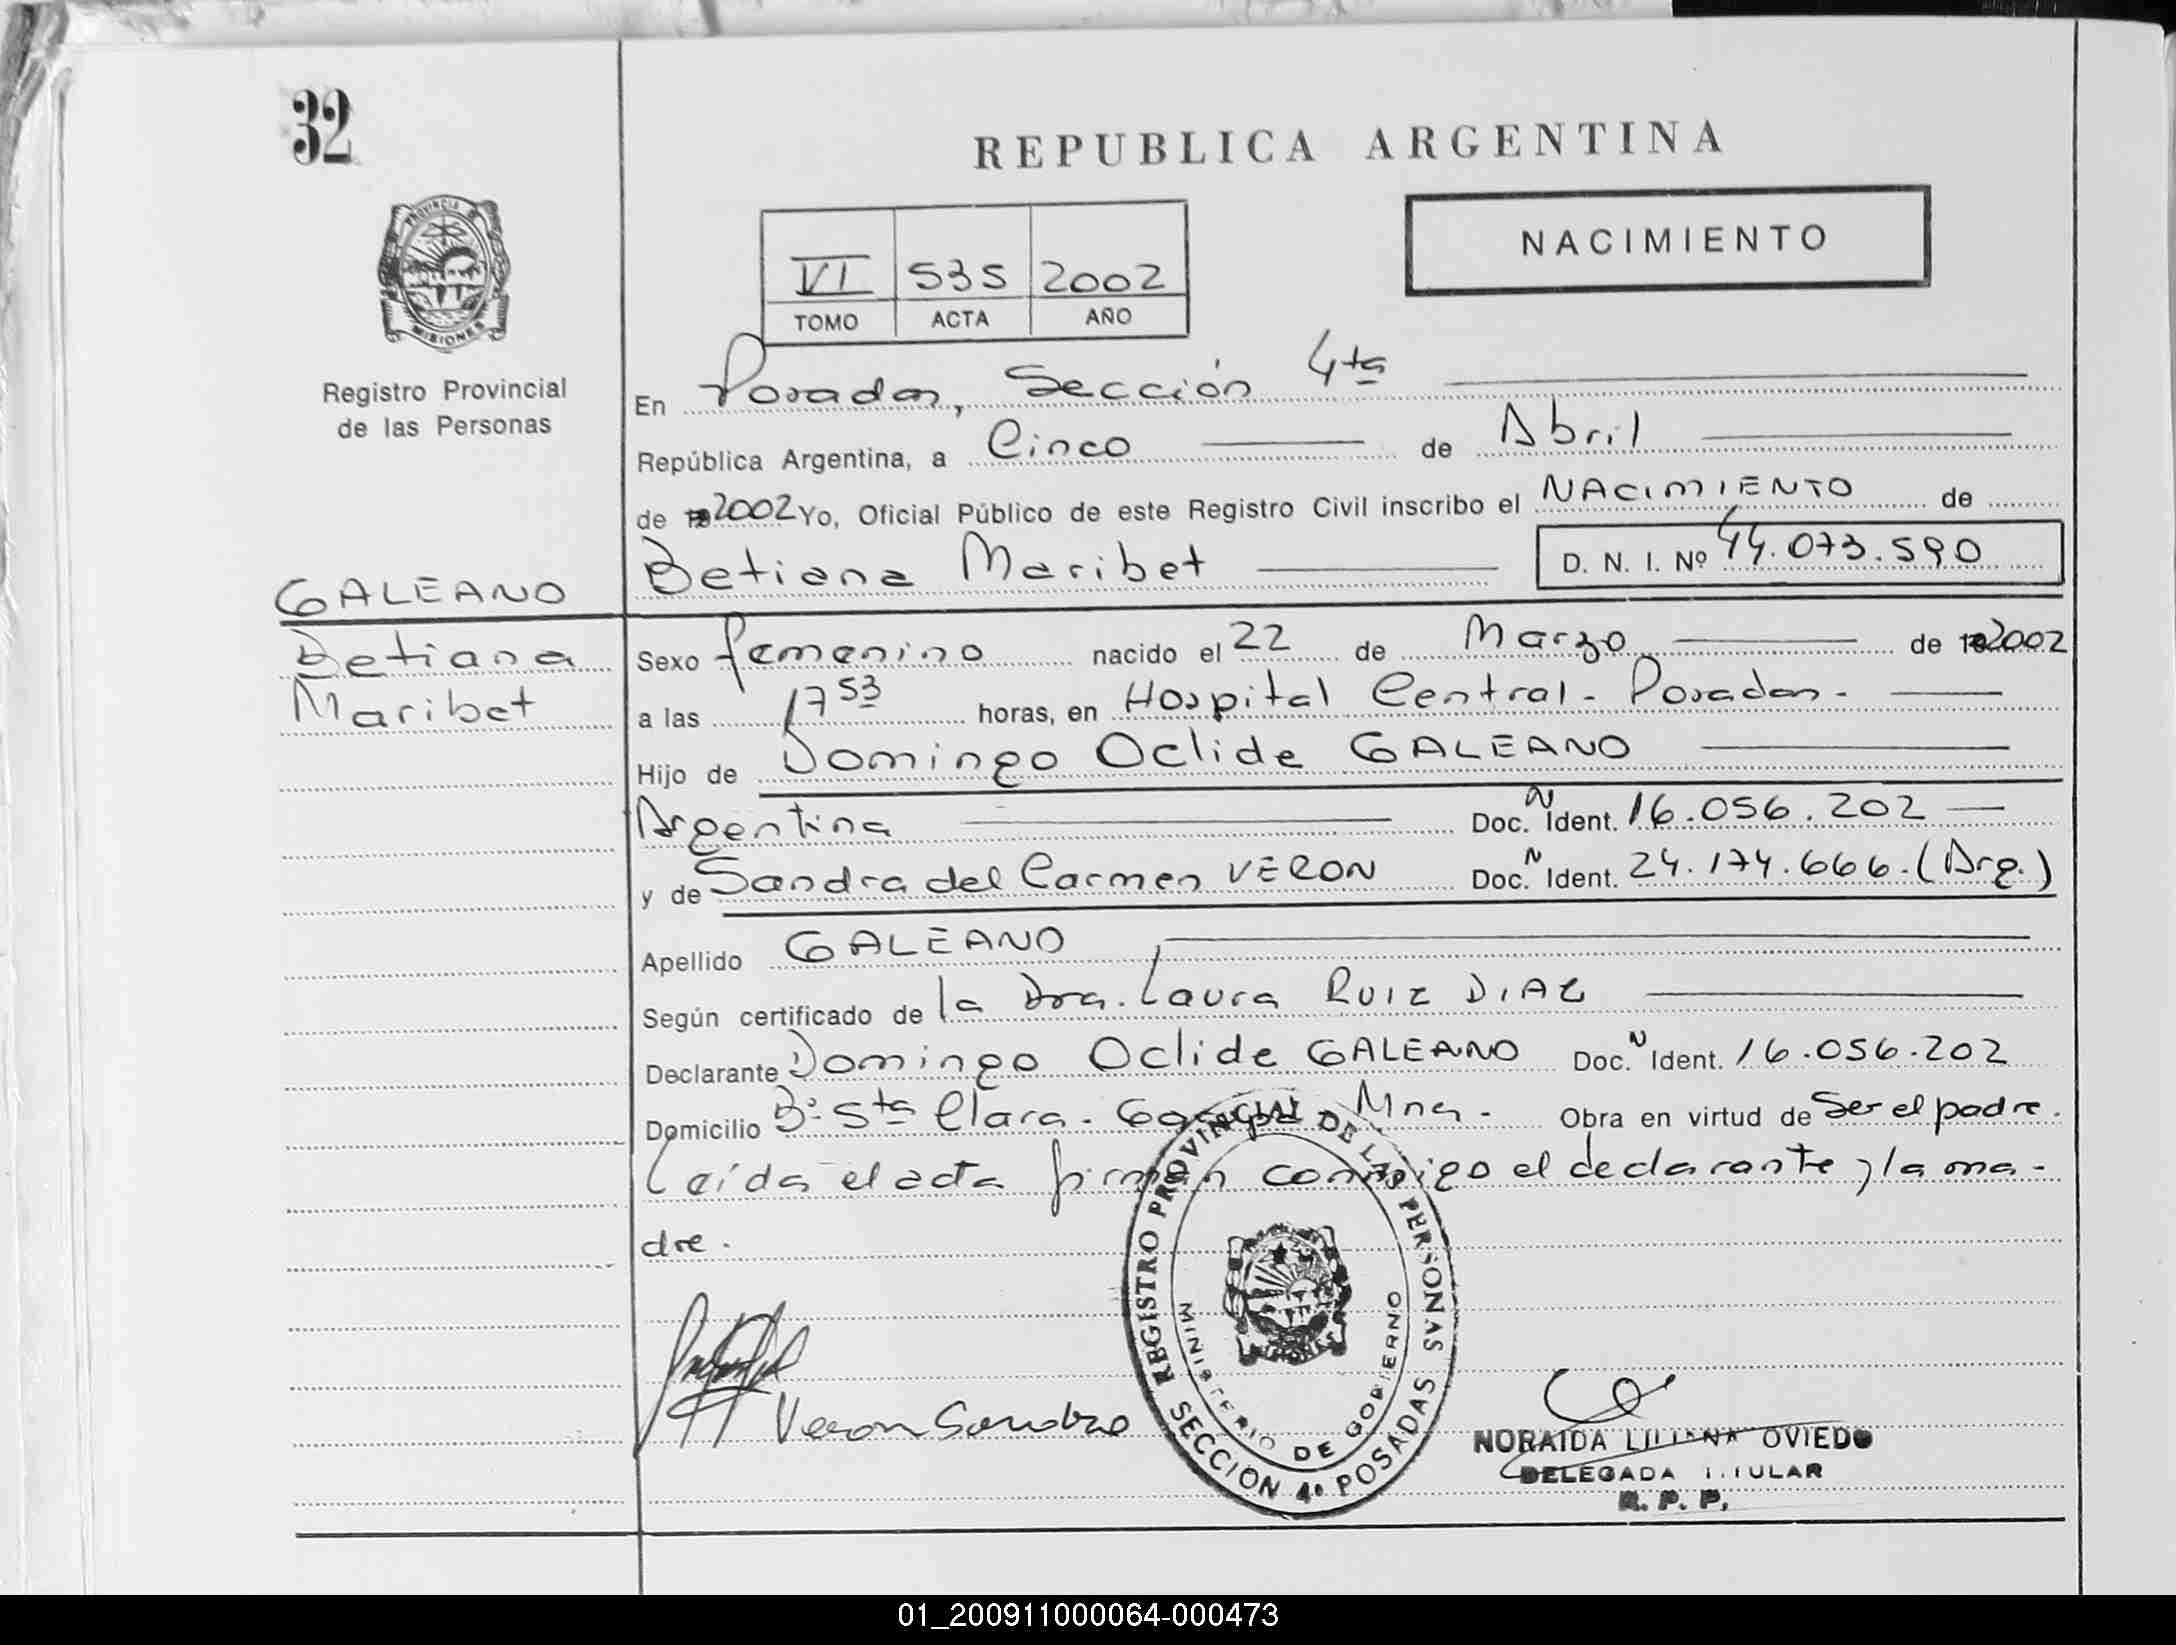 32
REPUBLICA ARGENTINA
PROVINCIA D
MISIONES
NACIMIENTO
VI 535 2002
TOMO ACTA AÑO
Registro Provincial
de las Personas
En Posadas, Sección 4ta
República Argentina, a Cinco de Abril
de 2002 Yo, Oficial Público de este Registro Civil inscribo el NACIMIENTO de
Betiana Maribet D. N. I. Nº 44.073.590
GALEANO
Betiana
Maribet
Sexo femenino nacido el 22 de Marzo de 2002
a las 17 53 horas, en Hospital Central - Posadas.
Hijo de Domingo Oclide GALEANO
Argentina Doc. N Ident. 16.056.202
y de Sandra del Carmen VERON Doc. N Ident. 24.174.666. (Arg.)
Apellido GALEANO
Según certificado de la Dra. Laura RUIZ DIAZ
Declarante Domingo Oclide GALEANO Doc. N Ident. 16.056.202
Domicilio Bº Sta Clara. Mnes. Obra en virtud de Ser el padre.
Leída el acta firman conmigo el declarante y la ma-
dre.
REGISTRO PROVINCIAL DE LAS PERSONAS
MINISTERIO DE GOBIERNO
SECCION 4º POSADAS
Veron Sandra
NORAIDA LILIANA OVIEDO
DELEGADA TITULAR
R. P. P.
01_200911000064-000473